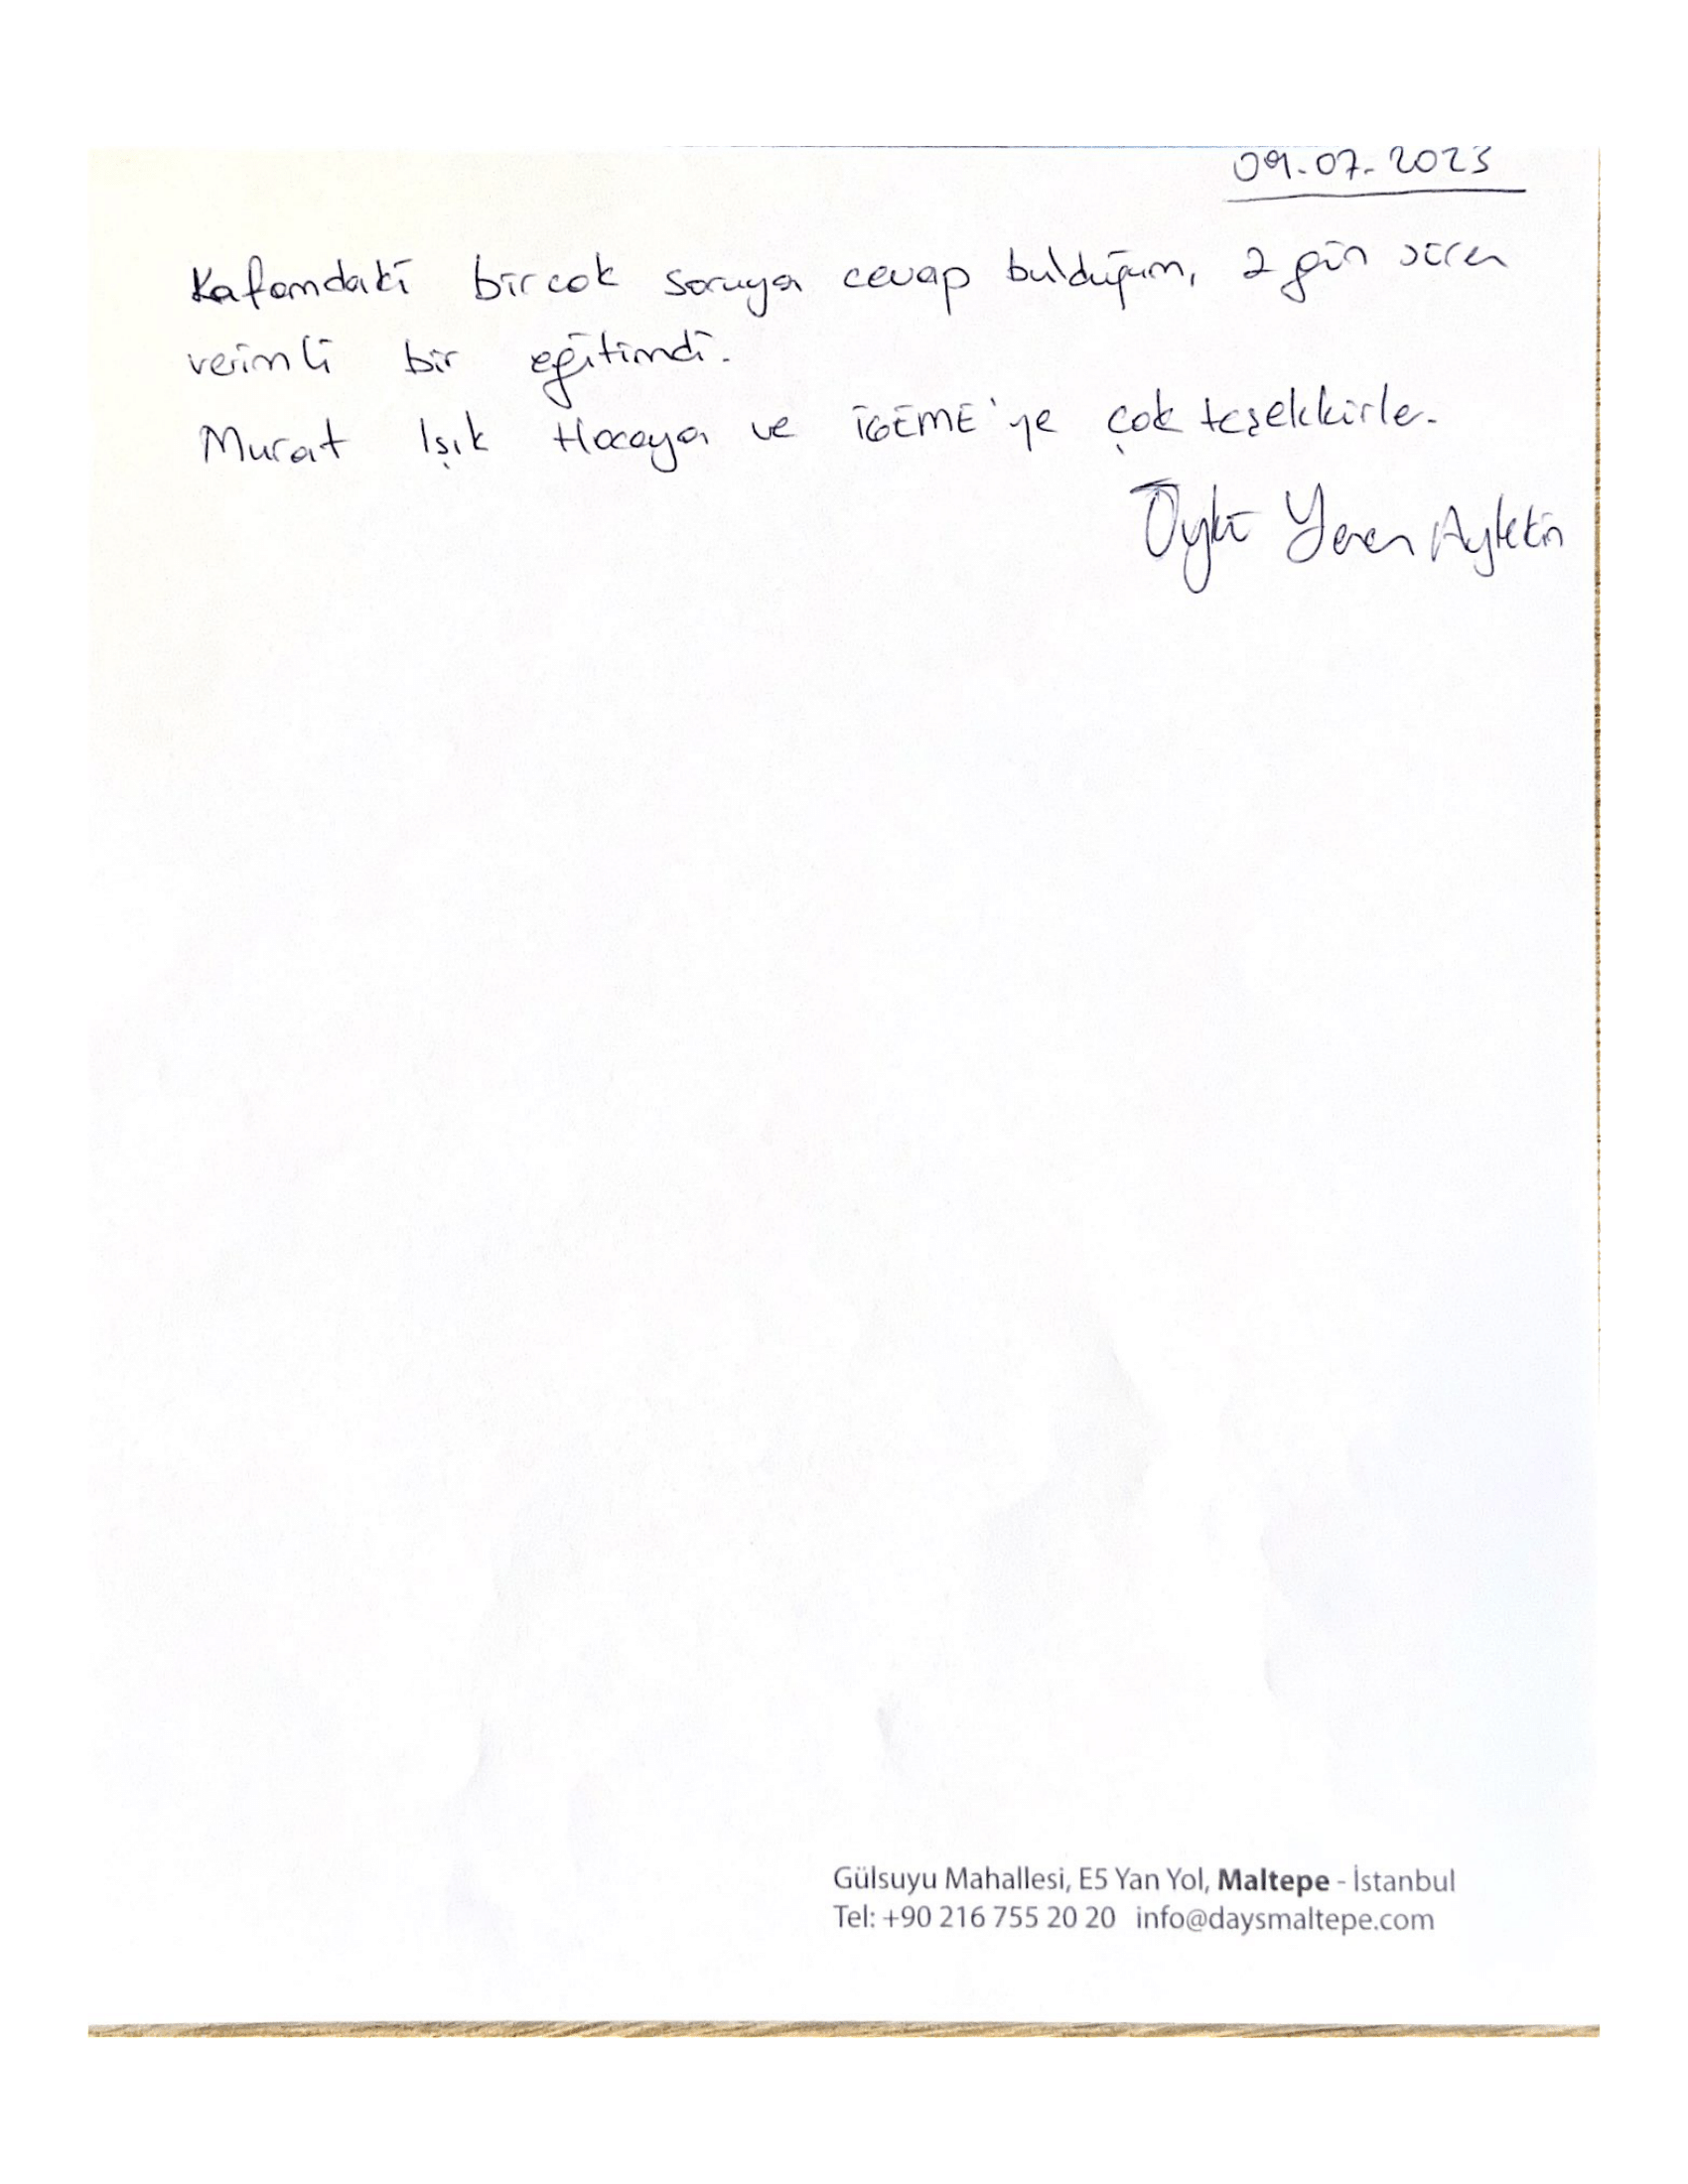 09.07.2023
Kafamdaki bircok soruya cevap bulduğum, 2 gün süren
verimli bir eğitimdi.
Murat Işık Hocaya ve İGEME'ye çok teşekkürler.
Öykü Yeren Aytekin
Gülsuyu Mahallesi, E5 Yan Yol, Maltepe - İstanbul
Tel: +90 216 755 20 20 info@daysmaltepe.com